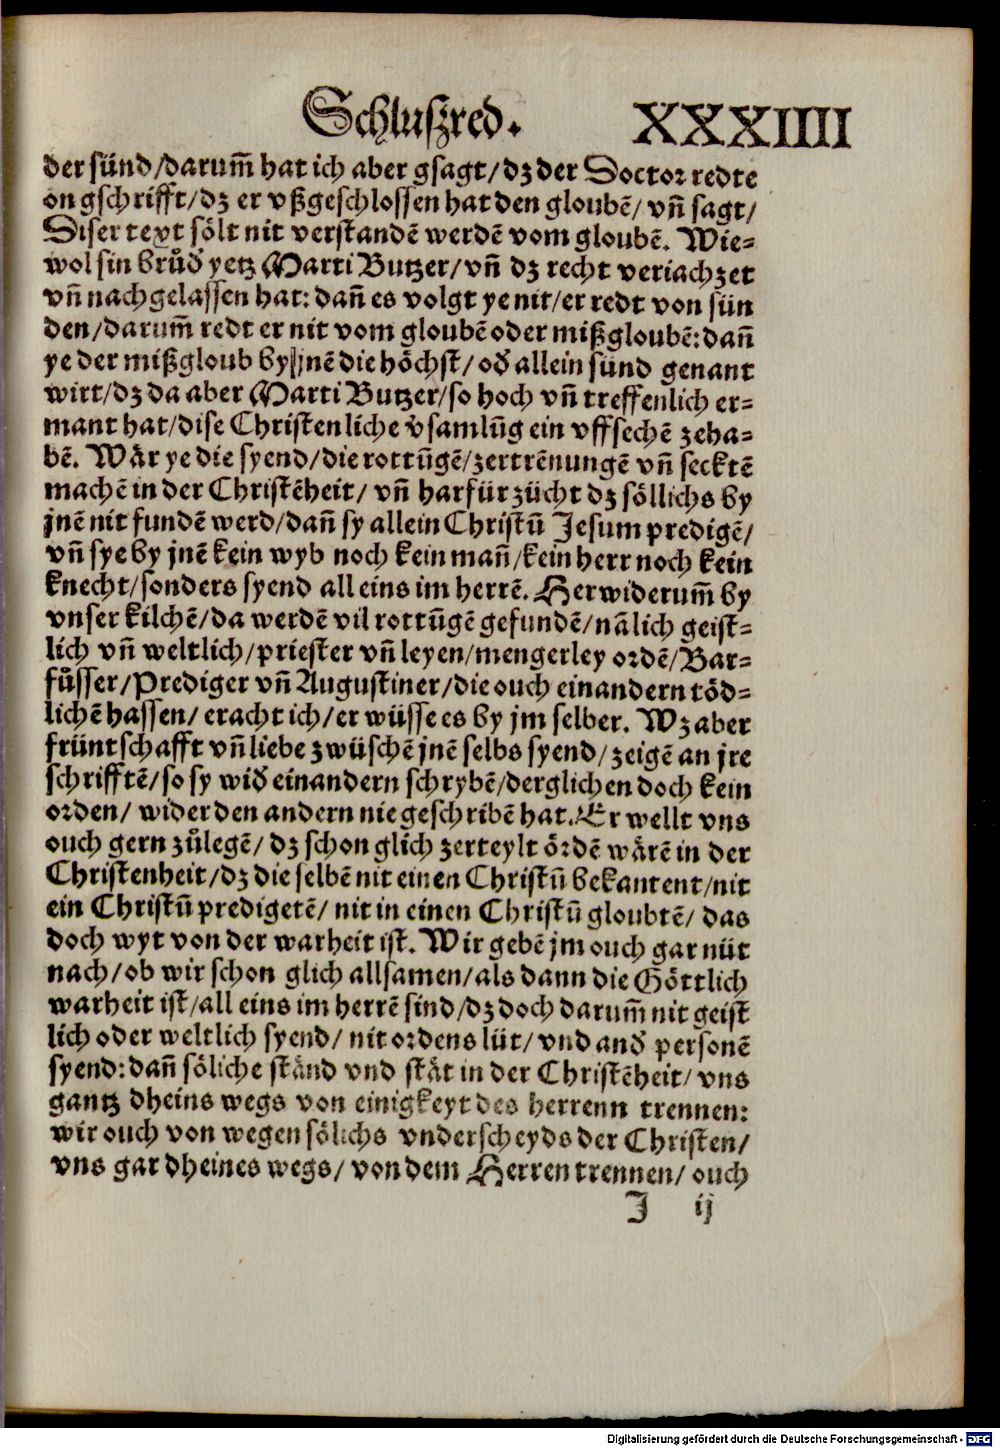 Schluszred. XXXIIII
der sünd/darum̃ hat ich aber gsagt/dz der Doctor redte
on gschrifft/dz er vßgeschlossen hat den gloubẽ/vñ sagt/
Diser text sölt nit verstandẽ werdẽ vom gloubẽ. Wie-
wol sin brůd̕ yetz Marti Butzer/vñ dz recht veriachzet
vñ nachgelassen hat: dañ es volgt ye nit/er redt von sün
den/darum̃ redt er nit vom gloubẽ oder mißgloubẽ: dañ
ye der mißgloub by jnẽ die höchst/od̕ allein sünd genant
wirt/dz da aber Marti Butzer/so hoch vñ treffenlich er-
mant hat/dise Christenliche v̕samlũg ein vffsechẽ zeha-
bẽ. Wär ye die syend/die rottũgẽ/zertrẽnungẽ vñ secktẽ
machẽ in der Christẽheit/ vñ harfür zücht dz söllichs by
jnẽ nit fundẽ werd/dañ sy allein Christũ Jesum predigẽ/
vñ sye by jnẽ kein wyb noch kein mañ/kein herr noch kein
knecht/sonders syend all eins im herrẽ. Herwiderum̃ by
vnser kilchẽ/da werdẽ vil rottũgẽ gefundẽ/nãlich geist-
lich vñ weltlich/priester vñ leyen/mengerley ordẽ/Bar-
fůsser/Prediger vñ Augustiner/die ouch einandern töd-
lichẽ hassen/ eracht ich/er wüsse es by jm selber. Wz aber
früntschafft vñ liebe zwüschẽ jnẽ selbs syend/zeigẽ an jre
schrifftẽ/so sy wid̕ einandern schrybẽ/derglichen doch kein
orden/ wider den andern nie geschribẽ hat. Er wellt vns
ouch gern zůlegẽ/ dz schon glich zerteylt ördẽ wärẽ in der
Christenheit/dz die selbẽ nit einen Christũ bekantent/nit
ein Christũ predigetẽ/ nit in einen Christũ gloubtẽ/ das
doch wyt von der warheit ist. Wir gebẽ jm ouch gar nüt
nach/ob wir schon glich allsamen/als dann die Göttlich
warheit ist/all eins im herrẽ sind/dz doch darum̃ nit geist
lich oder weltlich syend/ nit ordens lüt/ vnd and̕ personẽ
syend: dañ söliche ständ vnd stät in der Christẽheit/ vns
gantz dheins wegs von einigkeyt des herrenn trennen:
wir ouch von wegen sölichs vnderscheyds der Christen/
vns gar dheines wegs/ von dem Herren trennen/ ouch
J ij
Digitalisierung gefördert durch die Deutsche Forschungsgemeinschaft - DFG